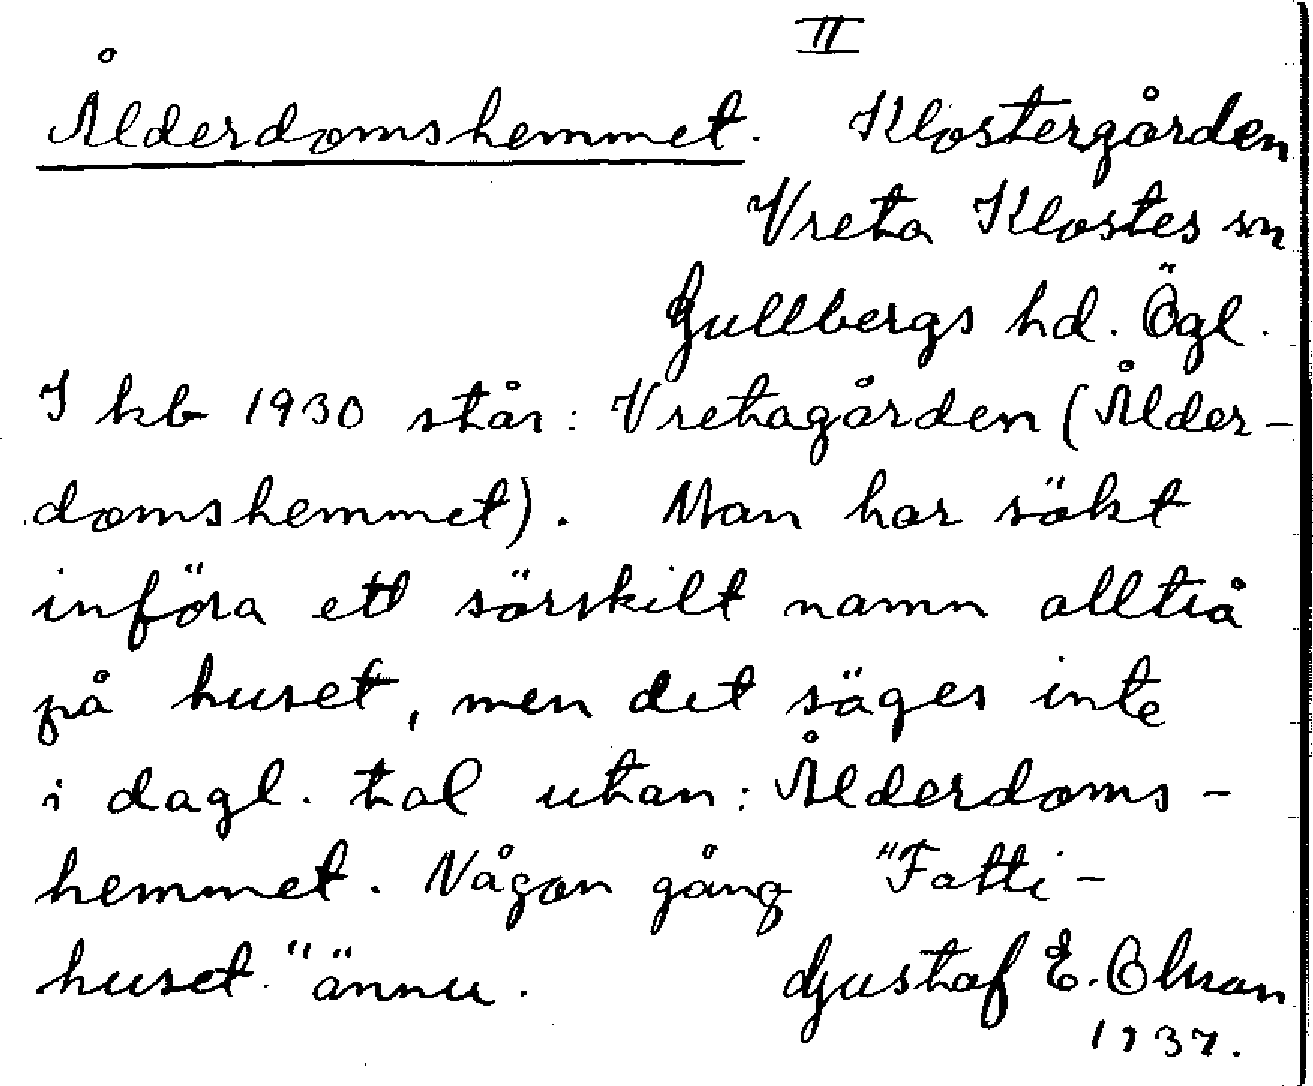 II
Ålderdomshemmet. Klostergården
Vreta Klosters sn
Gullbergs hd. Ögl.
I kb 1930 står: Vretagården (Ålder-
domshemmet). Man har sökt
införa ett särskilt namn alltså
på huset, men det säges inte
i dagl. tal utan: Ålderdoms-
hemmet. Någon gång "Fatti-
huset" ännu. Gustaf E. Olsson
1937.